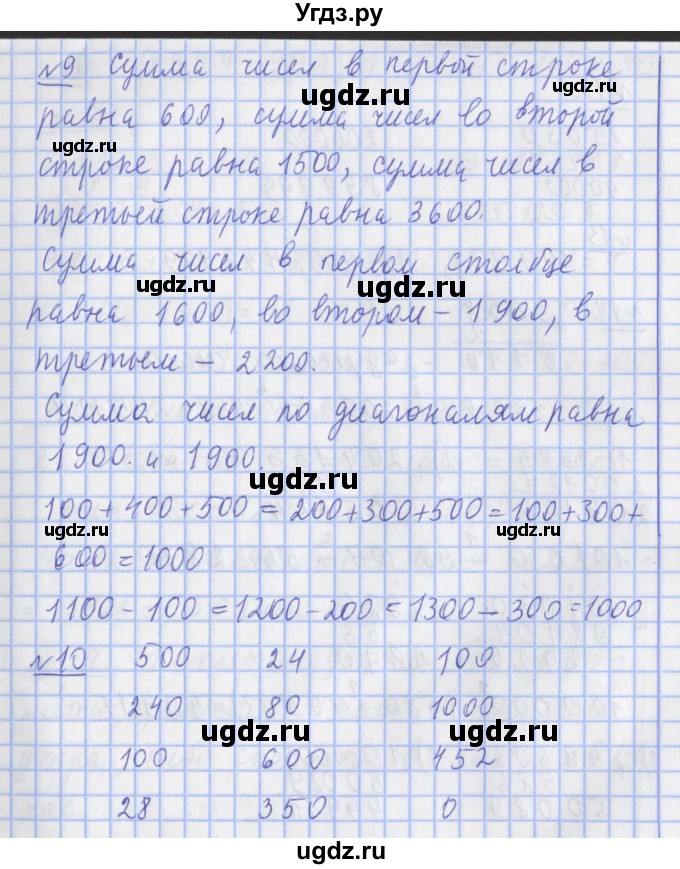 Угдз.ру
№9 Сумма чисел в первой строке
равна 600, сумма чисел во второй
строке равна 1500, сумма чисел в
третьей строке равна 3600.
Сумма чисел в первом столбце
равна 1600, во втором – 1900, в
третьем – 2200.
Сумма чисел по диагоналям равна
1900. и 1900.
100 + 400 + 500 = 200+300+500 = 100+300+
600 = 1000
1100 - 100 = 1200 - 200 = 1300 - 300 = 1000
№10 500 24 100
240 80 1000
100 600 452
28 350 0
ugdz.ru
ugdz.ru
ugdz.ru
ugdz.ru
ugdz.ru
ugdz.ru
ugdz.ru
ugdz.ru
ugdz.ru
ugdz.ru
ugdz.ru
ugdz.ru
ugdz.ru